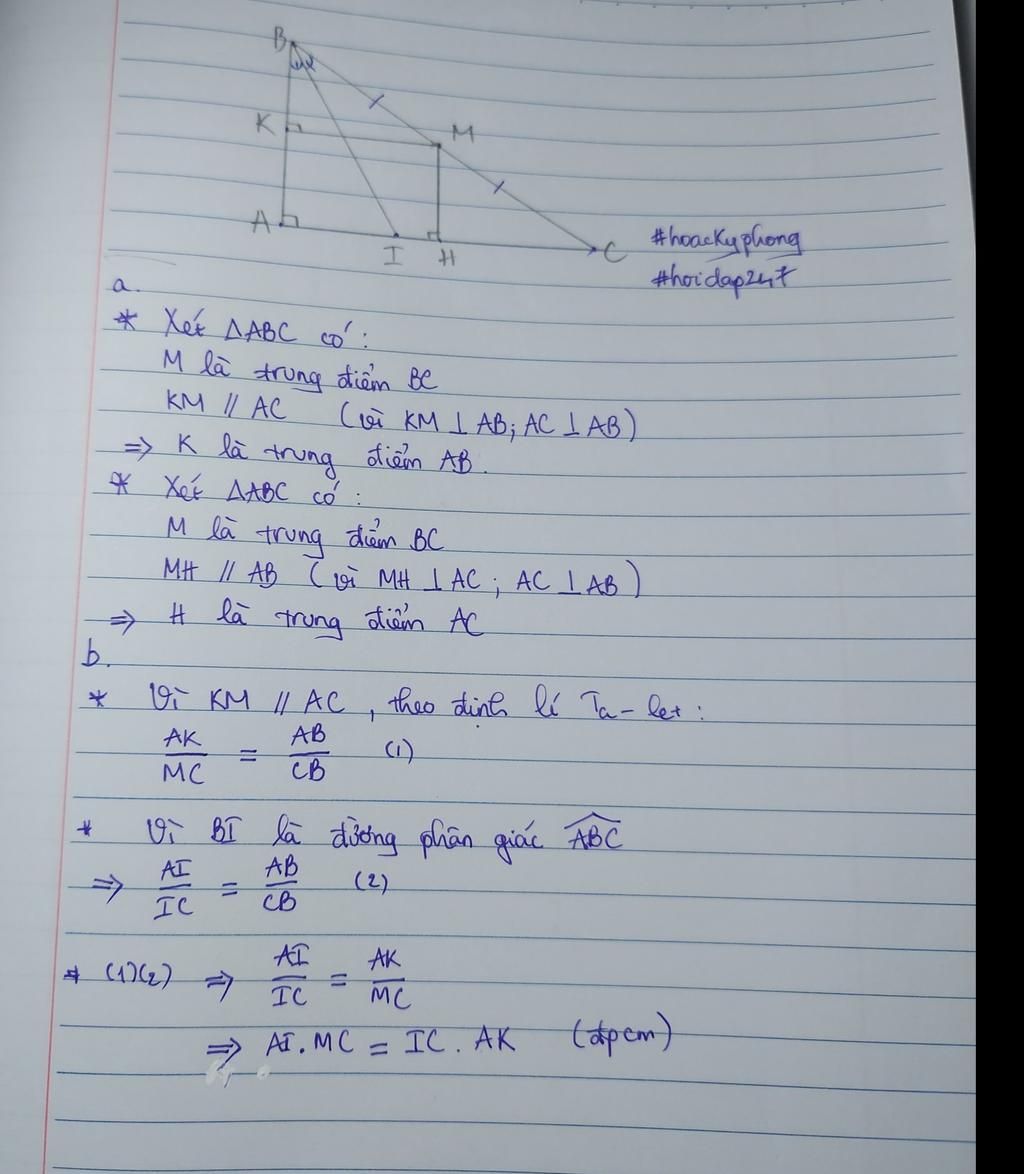 B
1 2
K
M
A
I
H
C
#hoacKyphong
#hoidap247
a.
* Xét ΔABC có:
M là trung điểm BC
KM // AC (vì KM ⊥ AB; AC ⊥ AB)
⇒ K là trung điểm AB.
* Xét ΔABC có:
M là trung điểm BC
MH // AB (vì MH ⊥ AC; AC ⊥ AB)
⇒ H là trung điểm AC
b.
* Vì KM // AC, theo định lí Ta-let:
AK/MC = AB/CB (1)
* Vì BI là đường phân giác \widehat{ABC}
⇒ AI/IC = AB/CB (2)
* (1)(2) ⇒ AI/IC = AK/MC
⇒ AI.MC = IC.AK (đpcm)